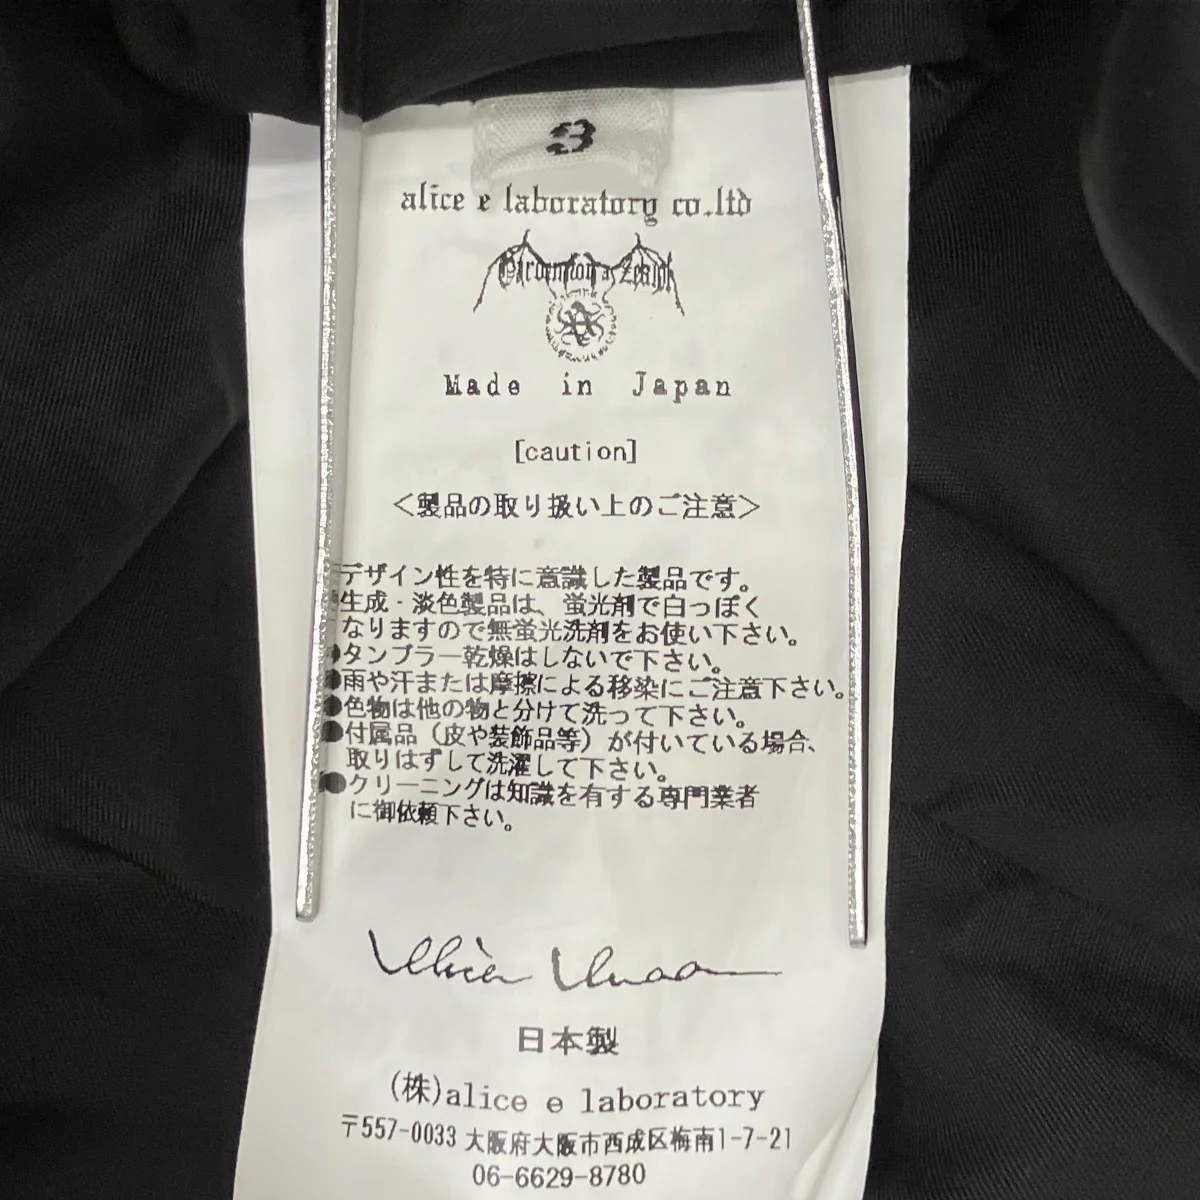 3
alice e laboratory co.ltd
Made in Japan
[caution]
<製品の取り扱い上のご注意>
デザイン性を特に意識した製品です。
生成・淡色製品は、蛍光剤で白っぽく
なりますので無蛍光洗剤をお使い下さい。
●タンブラー乾燥はしないで下さい。
●雨や汗または摩擦による移染にご注意下さい。
●色物は他の物と分けて洗って下さい。
●付属品（皮や装飾品等）が付いている場合、
取りはずして洗濯して下さい。
●クリーニングは知識を有する専門業者
に御依頼下さい。
日本製
(株)alice e laboratory
〒557-0033 大阪府大阪市西成区梅南1-7-21
06-6629-8780